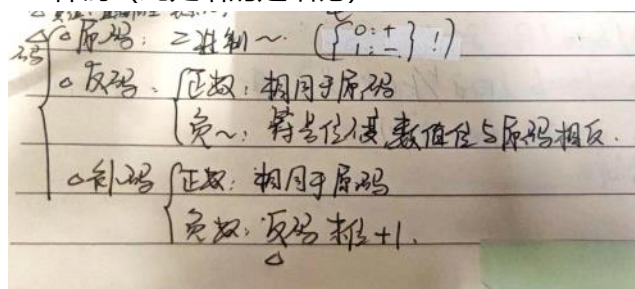 △原码：二进制～.（{0：+ 1：-}！）
码
△反码：{正数：相同于原码
负～：符号位不变，数值位与原码相反.
△补码{正数：相同于原码
负数：反码末位+1.
△